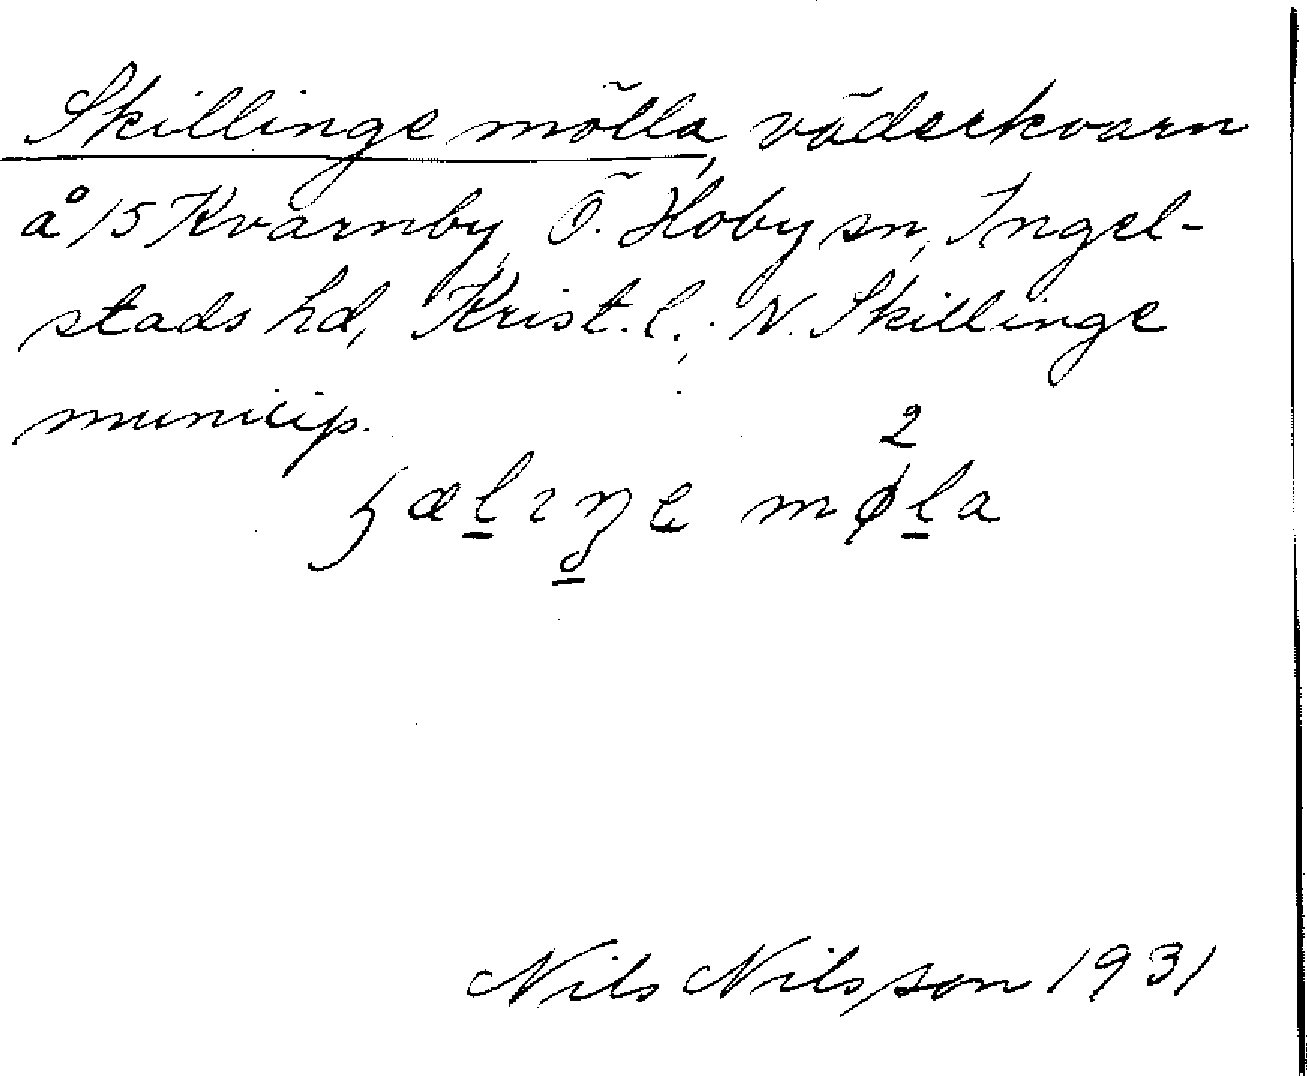 Skillinge mölla, väderkvarn
å 15 Kvarnby, Ö. Hoby sn, Ingel-
stads hd, Krist. l.; N. Skillinge
municip.
2
ʃælıŋe møla
Nils Nilsson 1931